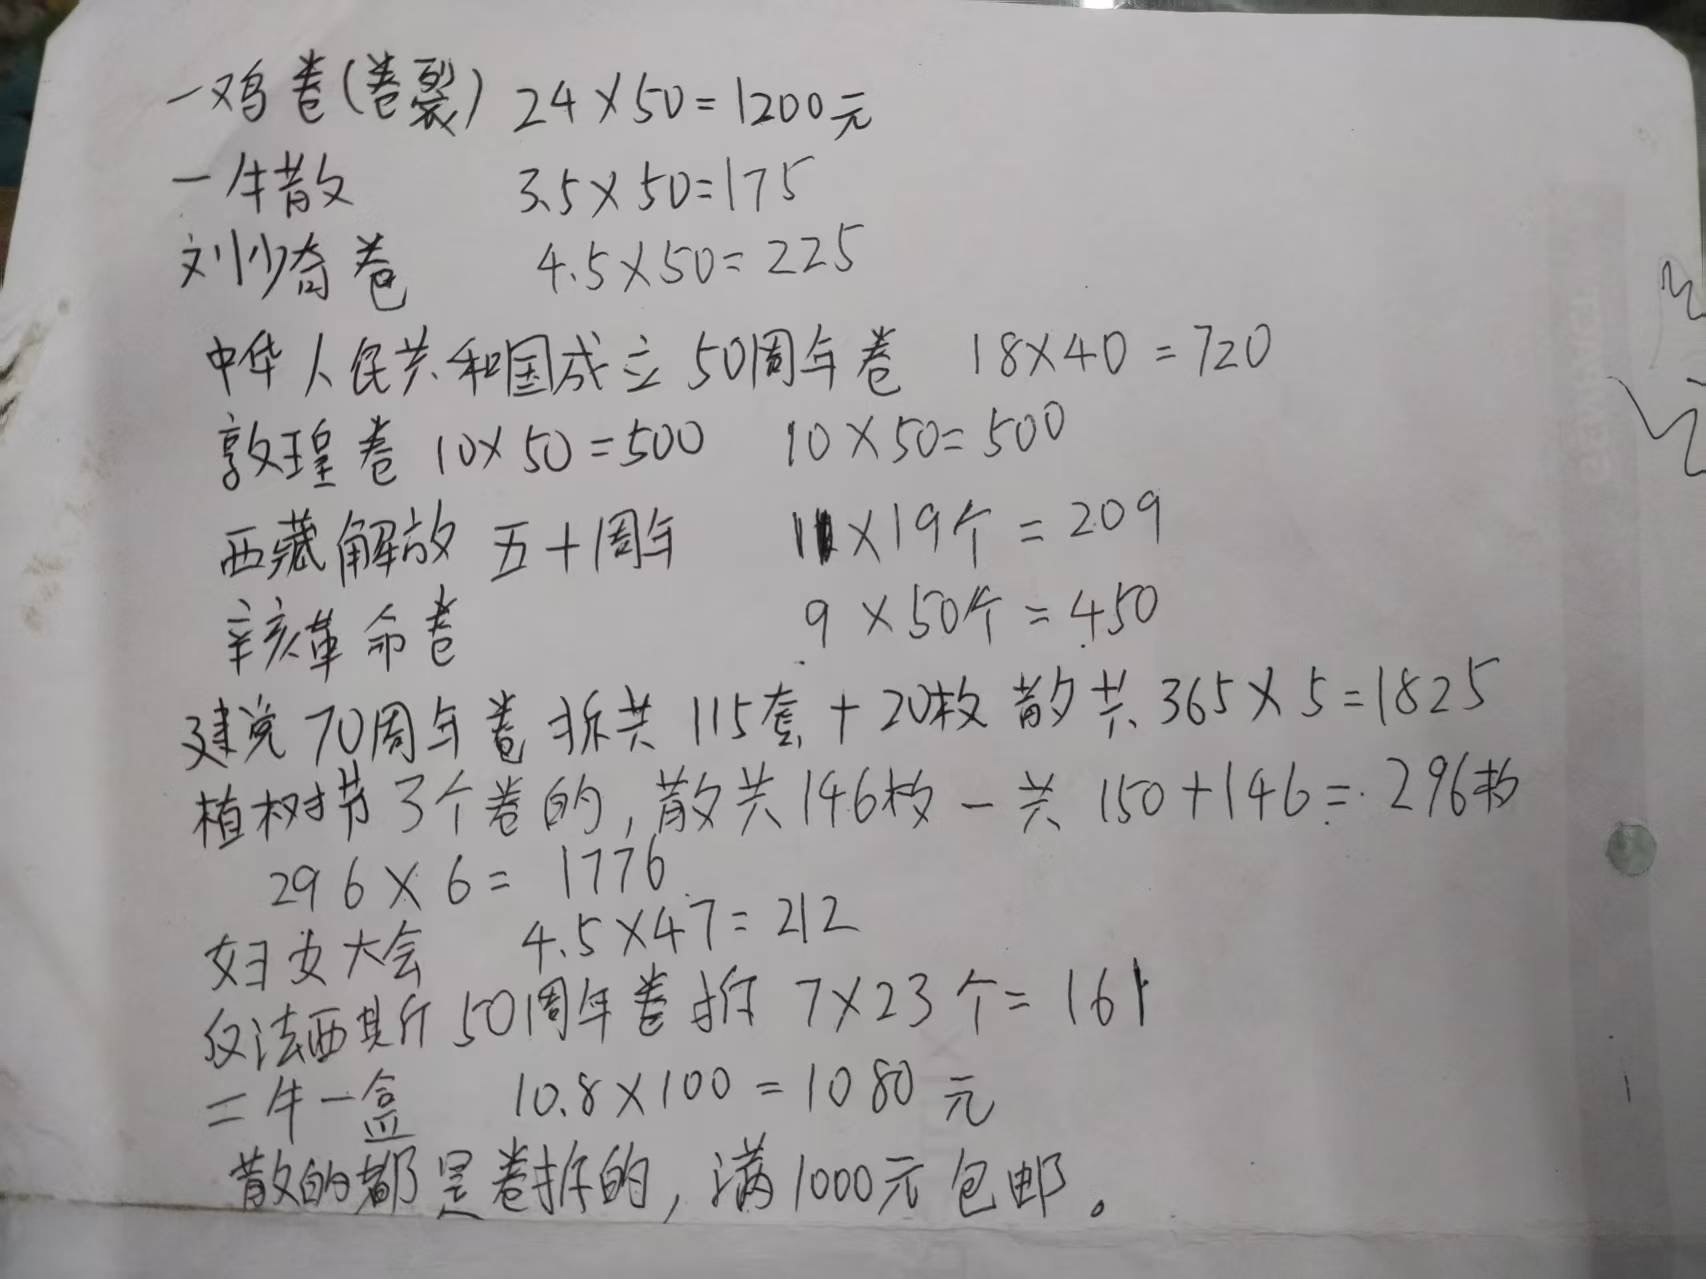 一鸡卷(卷裂) 24×50=1200元
一牛散 3.5×50=175
刘少奇卷 4.5×50=225
中华人民共和国成立50周年卷 18×40=720
敦煌卷 10×50=500 10×50=500
西藏解放五十周年 11×19个=209
辛亥革命卷 9×50个=450
建党70周年卷拆共115套+20枚散共365×5=1825
植树节3个卷的,散共146枚一共150+146=296枚
296×6=1776
妇女大会 4.5×47=212
反法西其斤50周年卷拆 7×23个=161
二牛一盒 10.8×100=1080元
散的都是卷拆的,满1000元包邮。